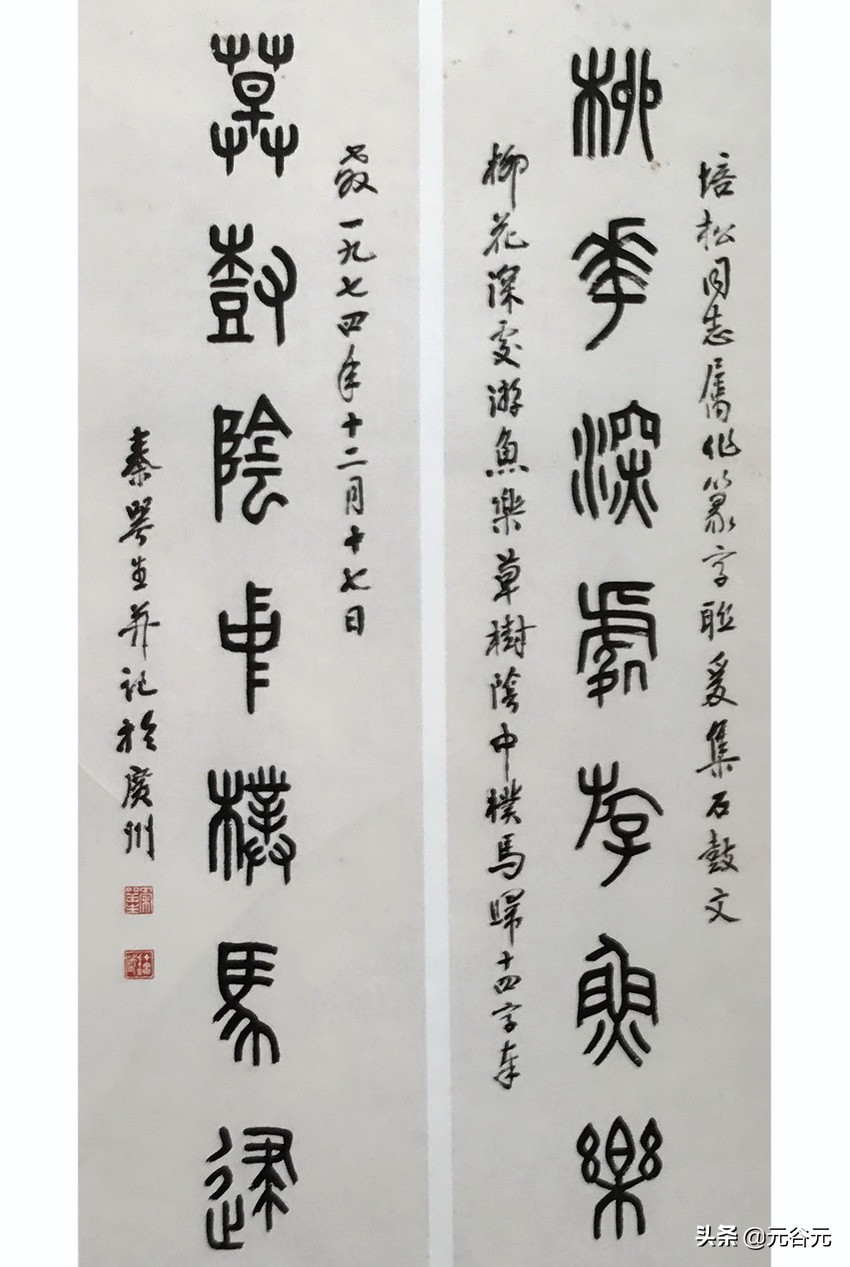 培松同志屬作篆字聯爰集石鼓文
柳花深處游魚樂
柳花深處游魚樂草樹陰中樸馬歸十四字奉
教一九七四年十二月十七日
草樹陰中樸馬歸
秦咢生并記於廣州
头条 @元谷元